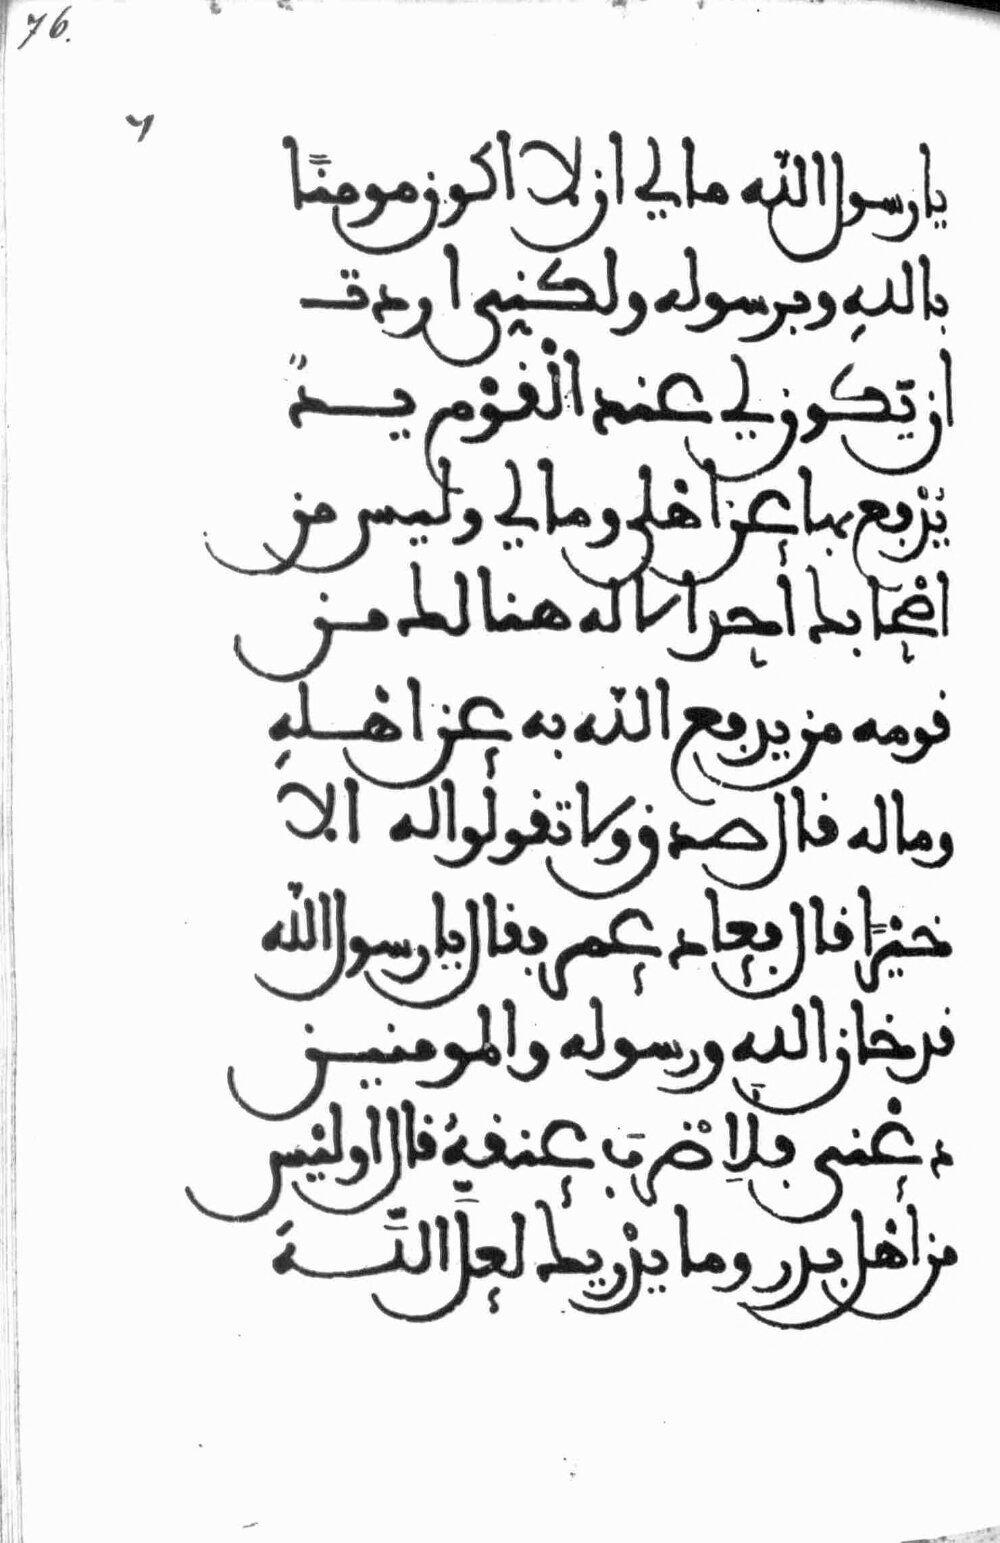 76.
يا رسول الله ما لي ان لا اكون مومنًا
بالله وبرسوله ولكنني اردت
ان تكون لي عند القوْم يدً
يُدْفع بها عن اهْلي ومالي وليس من
اصْحابك أحد الا له هنالك من
قومه من يدفع الله به عن اهْله
وماله قال صدق ولا تقولوا له الا
خيْرًا قال فعاد عمر فقال يا رسول الله
قد خان الله ورسوله والمومنين
دعْني فلِاضْرب عنقهُ قال اوليْس
من أهْل بدر وما يدْريك لعلّ اللّه